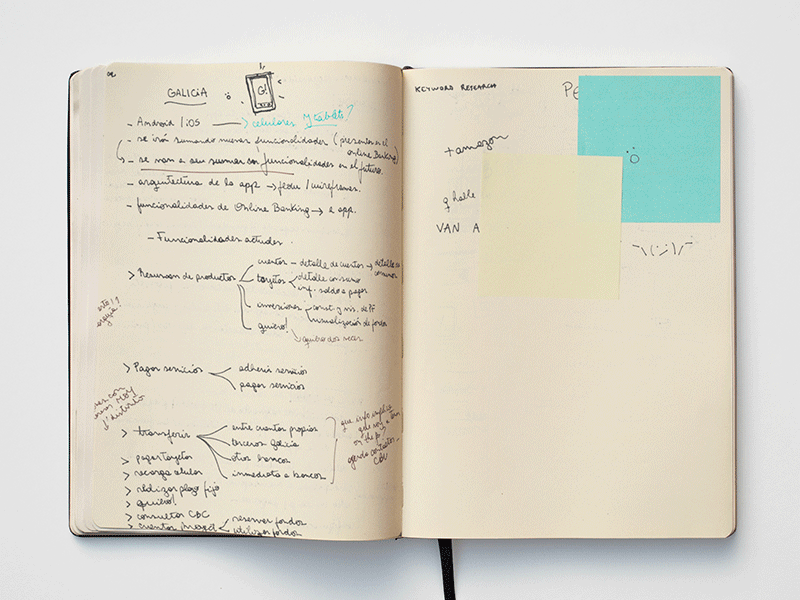 GALICIA
G!
- Android / iOS → celulares y tablets?
- se irán sumando nuevas funcionalidades (presentes en el
online Banking)
- se van a sumar con funcionalidades en el futuro.
- arquitectura de la app → flow / wireframes.
- funcionalidades de Online Banking → a app.
- Funcionalidades actuales.
> Resumen de productos
cuentas - detalle de cuentas → detalle
tarjetas
detalle consumo
inf. saldo a pagar
inversiones
const. y vis. de PF
visualización de fondos
quiero!
quiero dos veces
> Pagar servicios
adherir servicios
pagar servicios
> transferir
entre cuentas propias
terceros galicia
otros bancos
inmediata a bancos
que info implica
agenda contactos
CBU
> pagar tarjetas
> recarga celular
> realizar plazo fijo
> quiero!
> consultar CBU
> cuentas
reservar fondos
utilizar fondos
KEYWORD RESEARCH
PE
+ amazon
q halle
VAN A
¯\(ツ)/¯